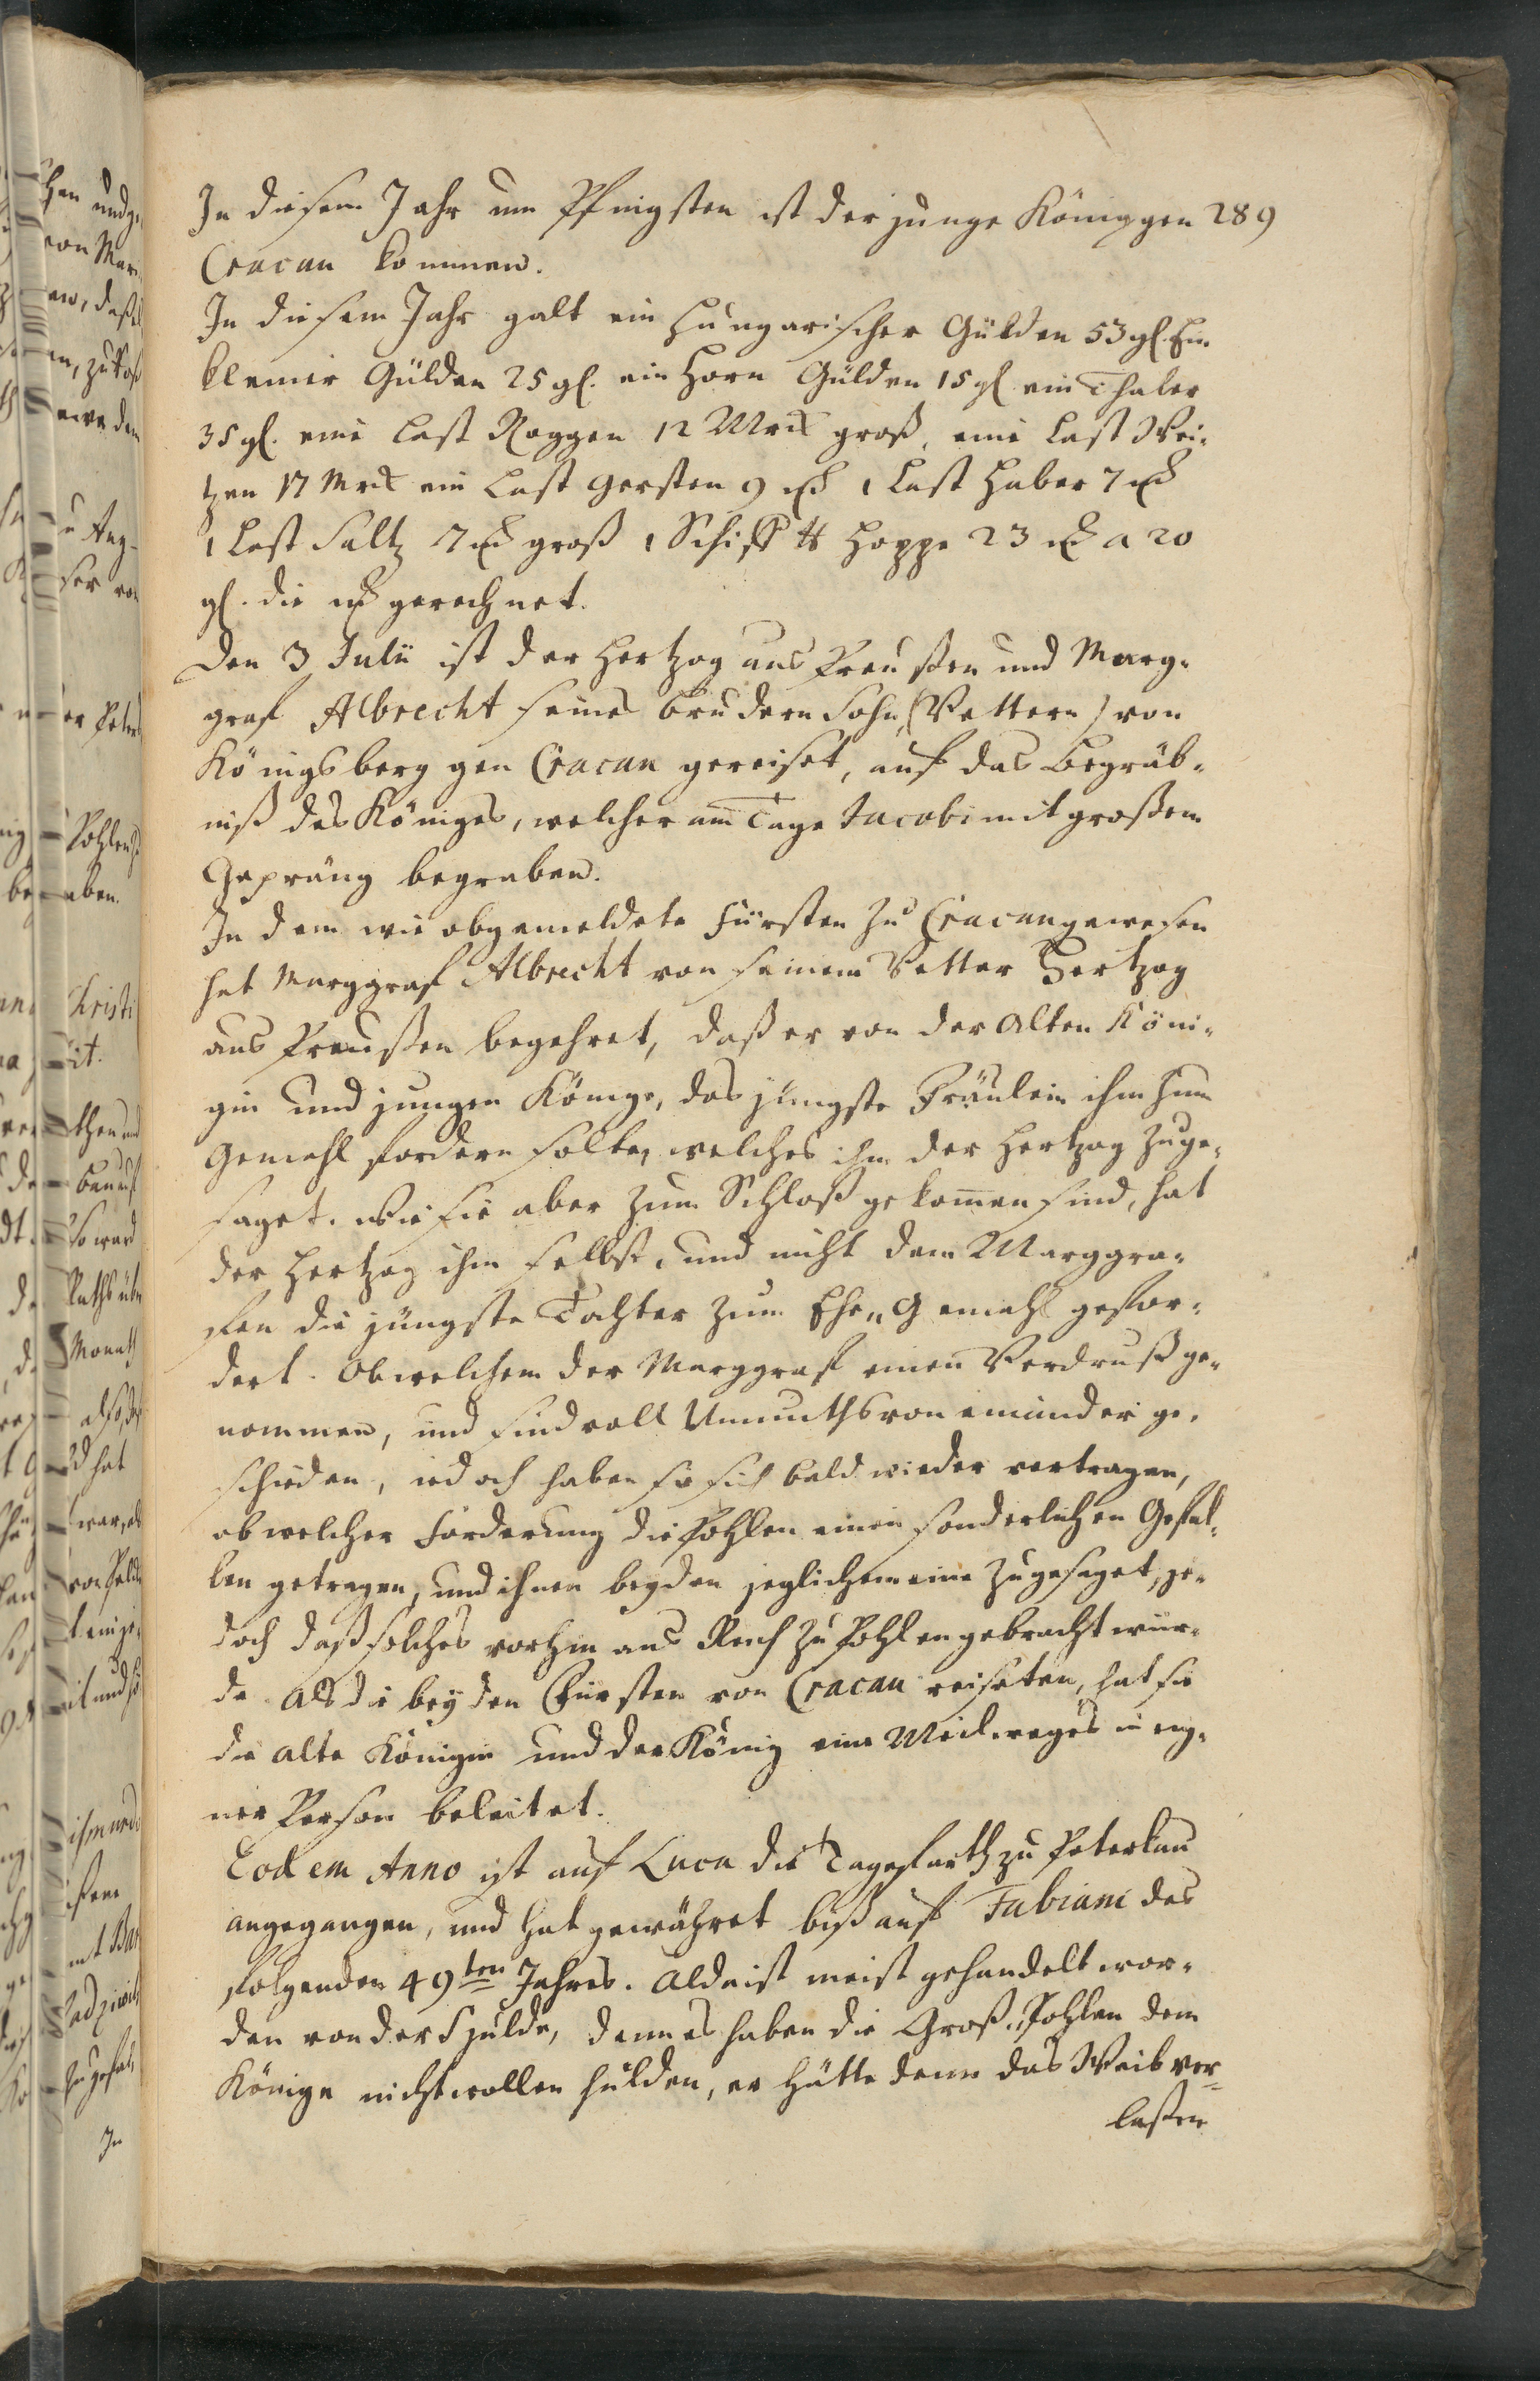 In diesem Jahr um Pfingsten ist der junge König gen 289
Cracau kommen.
In diesem Jahr galt ein Hungarischer Gülden 53 gl. Ein
kleiner Gülden 25 gl. ein Horn Gülden 15 gl ein Thaler
35 gl. eine Last Roggen 12 Mrck groß, eine Last Wei-
tzen 17 Mrck ein Last Gersten 9 mk 1 Last Haber 7 mk
1 Last Saltz 7 mk groß 1 Schiff ℔ Hoppe 23 mk a 20
gl. die mk gerechnet.
Den 3 Julii ist der Hertzog aus Preußen und Marg-
graf Albrecht seines Brudern Sohn (Vettern) von
Königsberg gen Cracau gereiset, auf das Begräb-
niß des Königes, welcher am Tage Jacobi mit großem
Gepräng begraben.
In dem wie obgemeldete Fürsten zu Cracau gewesen
hat Marggraf Albrecht von seinem Vetter Hertzog
aus Preußen begehret, daß er von der Alten Köni-
gin und jungen Könige, das jüngste Fräulein ihm zum
Gemahl fordern solte, welches ihm der Hertzog zuge-
saget. Wie sie aber zum Schloß gekom̄en sind, hat
der Hertzog ihm selbst, und nicht dem Marggra-
fen die jüngste Tochter zum Ehe-Gemahl gefor-
dert. Ob welchem der Marggraf einen Verdruß ge-
nommen, und sind voll Unmuths von einander ge-
schieden, iedoch haben sie sich bald wieder vertragen,
ob welcher Forderung die Pohlen einen sonderlichen Gefal-
len getragen, und ihnen beyden jeglichem eine zugesaget, je-
doch daß solches vorhin ans Reich zu Pohlen gebracht wür-
de. Als die beyden Fürsten von Cracau reiseten, hat sie
die alte Königin und der König eine Meilweges in eig-
ner Person beleitet.
Eodem Anno ist auf Luca die Tagefarth zu Peterkau
angegangen, und hat gewähret biß auf Fabiani des
folgenden 49ten Jahres. Alda ist meist gehandelt wor-
den von der Hulde, denn es haben die Groß-Pohlen dem
Könige nicht wollen hulden, er hätte denn das Weib ver-
laßen